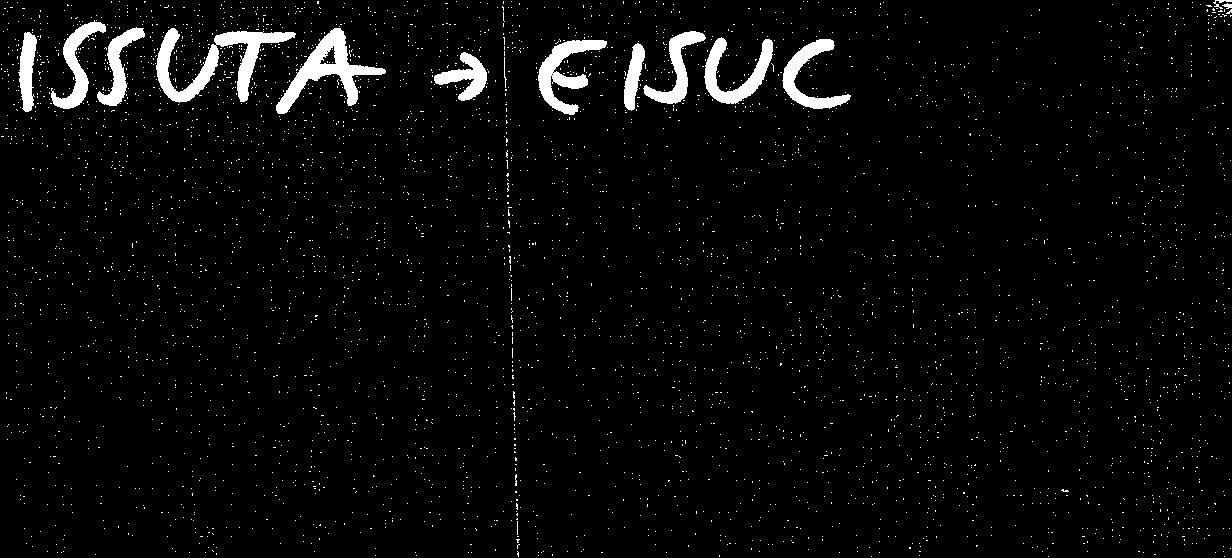 ISSUTA → EISUC